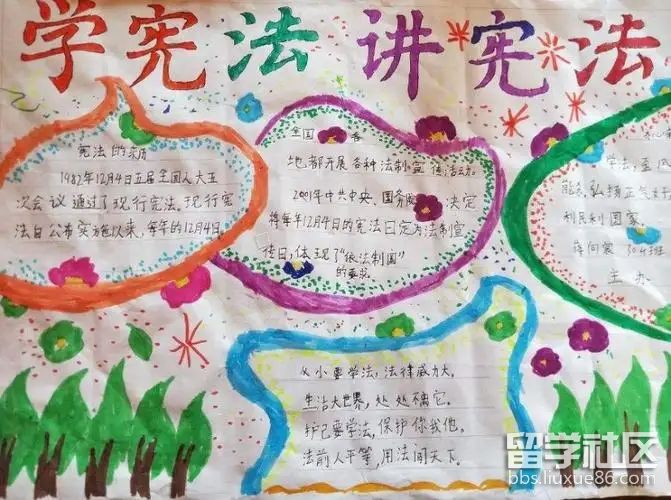 学宪法 讲宪法
宪法的来历
1982年12月4日五届全国人大五
次会议通过了现行宪法。现行宪
法自公布实施以来，每年的12月4日，
全国
各
地都开展各种法制宣传活动。
2001年中共中央、国务院决定
将每年12月4日的宪法日定为法制宣
传日，体现了“依法制国”
的要求。
学法，至
服务，弘扬正气
利民利国家。
304班
主办
从小要学法，法律威力大。
生活大世界，处处离它。
护己要学法，保护你我他。
法前人平等，用法闯天下。
留学社区
bbs.liuxue86.com